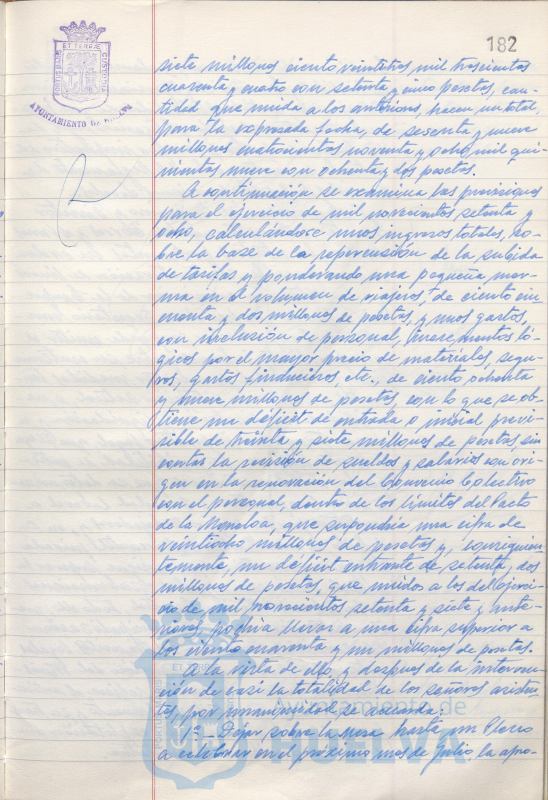 182
ET TERRÆ
CUSTODIA
AYUNTAMIENTO DE
siete millones ciento veintitres mil trescientas
cuarenta y cuatro con setenta y cinco pesetas, can-
tidad que unida a las anteriores, hacen un total,
para la expresada fecha, de sesenta y nueve
millones cuatrocientas noventa y ocho mil qui-
nientas nueve con ochenta y dos pesetas.
A continuación se examina las previsiones
para el ejercicio de mil novecientos setenta y
ocho, calculándose unos ingresos totales, so-
bre la base de la repercusión de la subida
de tarifas y ponderando una pequeña mer-
ma en el volumen de viajeros, de ciento cin
cuenta y dos millones de pesetas, y unos gastos,
con inclusión de personal, incrementos ló-
gicos por el mayor precio de materiales, segu-
ros, gastos financieros, etc., de ciento ochenta
y nueve millones de pesetas, con lo que se ob-
tiene un déficit de entrada o inicial previ-
sible de treinta y siete millones de pesetas, sin
contar la revisión de sueldos y salarios con ori-
gen en la renovación del Convenio Colectivo
con el personal, dentro de los límites del Pacto
de la Moncloa, que supondría una cifra de
veintiocho millones de pesetas y, consiguien
temente, un déficit entrante de setenta y dos
millones de pesetas, que unidos a los del ejerci-
cio de mil novecientos setenta y siete y ante-
riores podría llevar a una cifra superior a
los ciento cuarenta y un millones de pesetas.
A la vista de ello, y despues de la interven-
ción de casi la totalidad de los señores asisten-
tes, por unanimidad se acuerda:
1º.- Dejar sobre la mesa hasta un Pleno
a celebrar en el próximo mes de Julio, la apro-
Ayuntamiento de